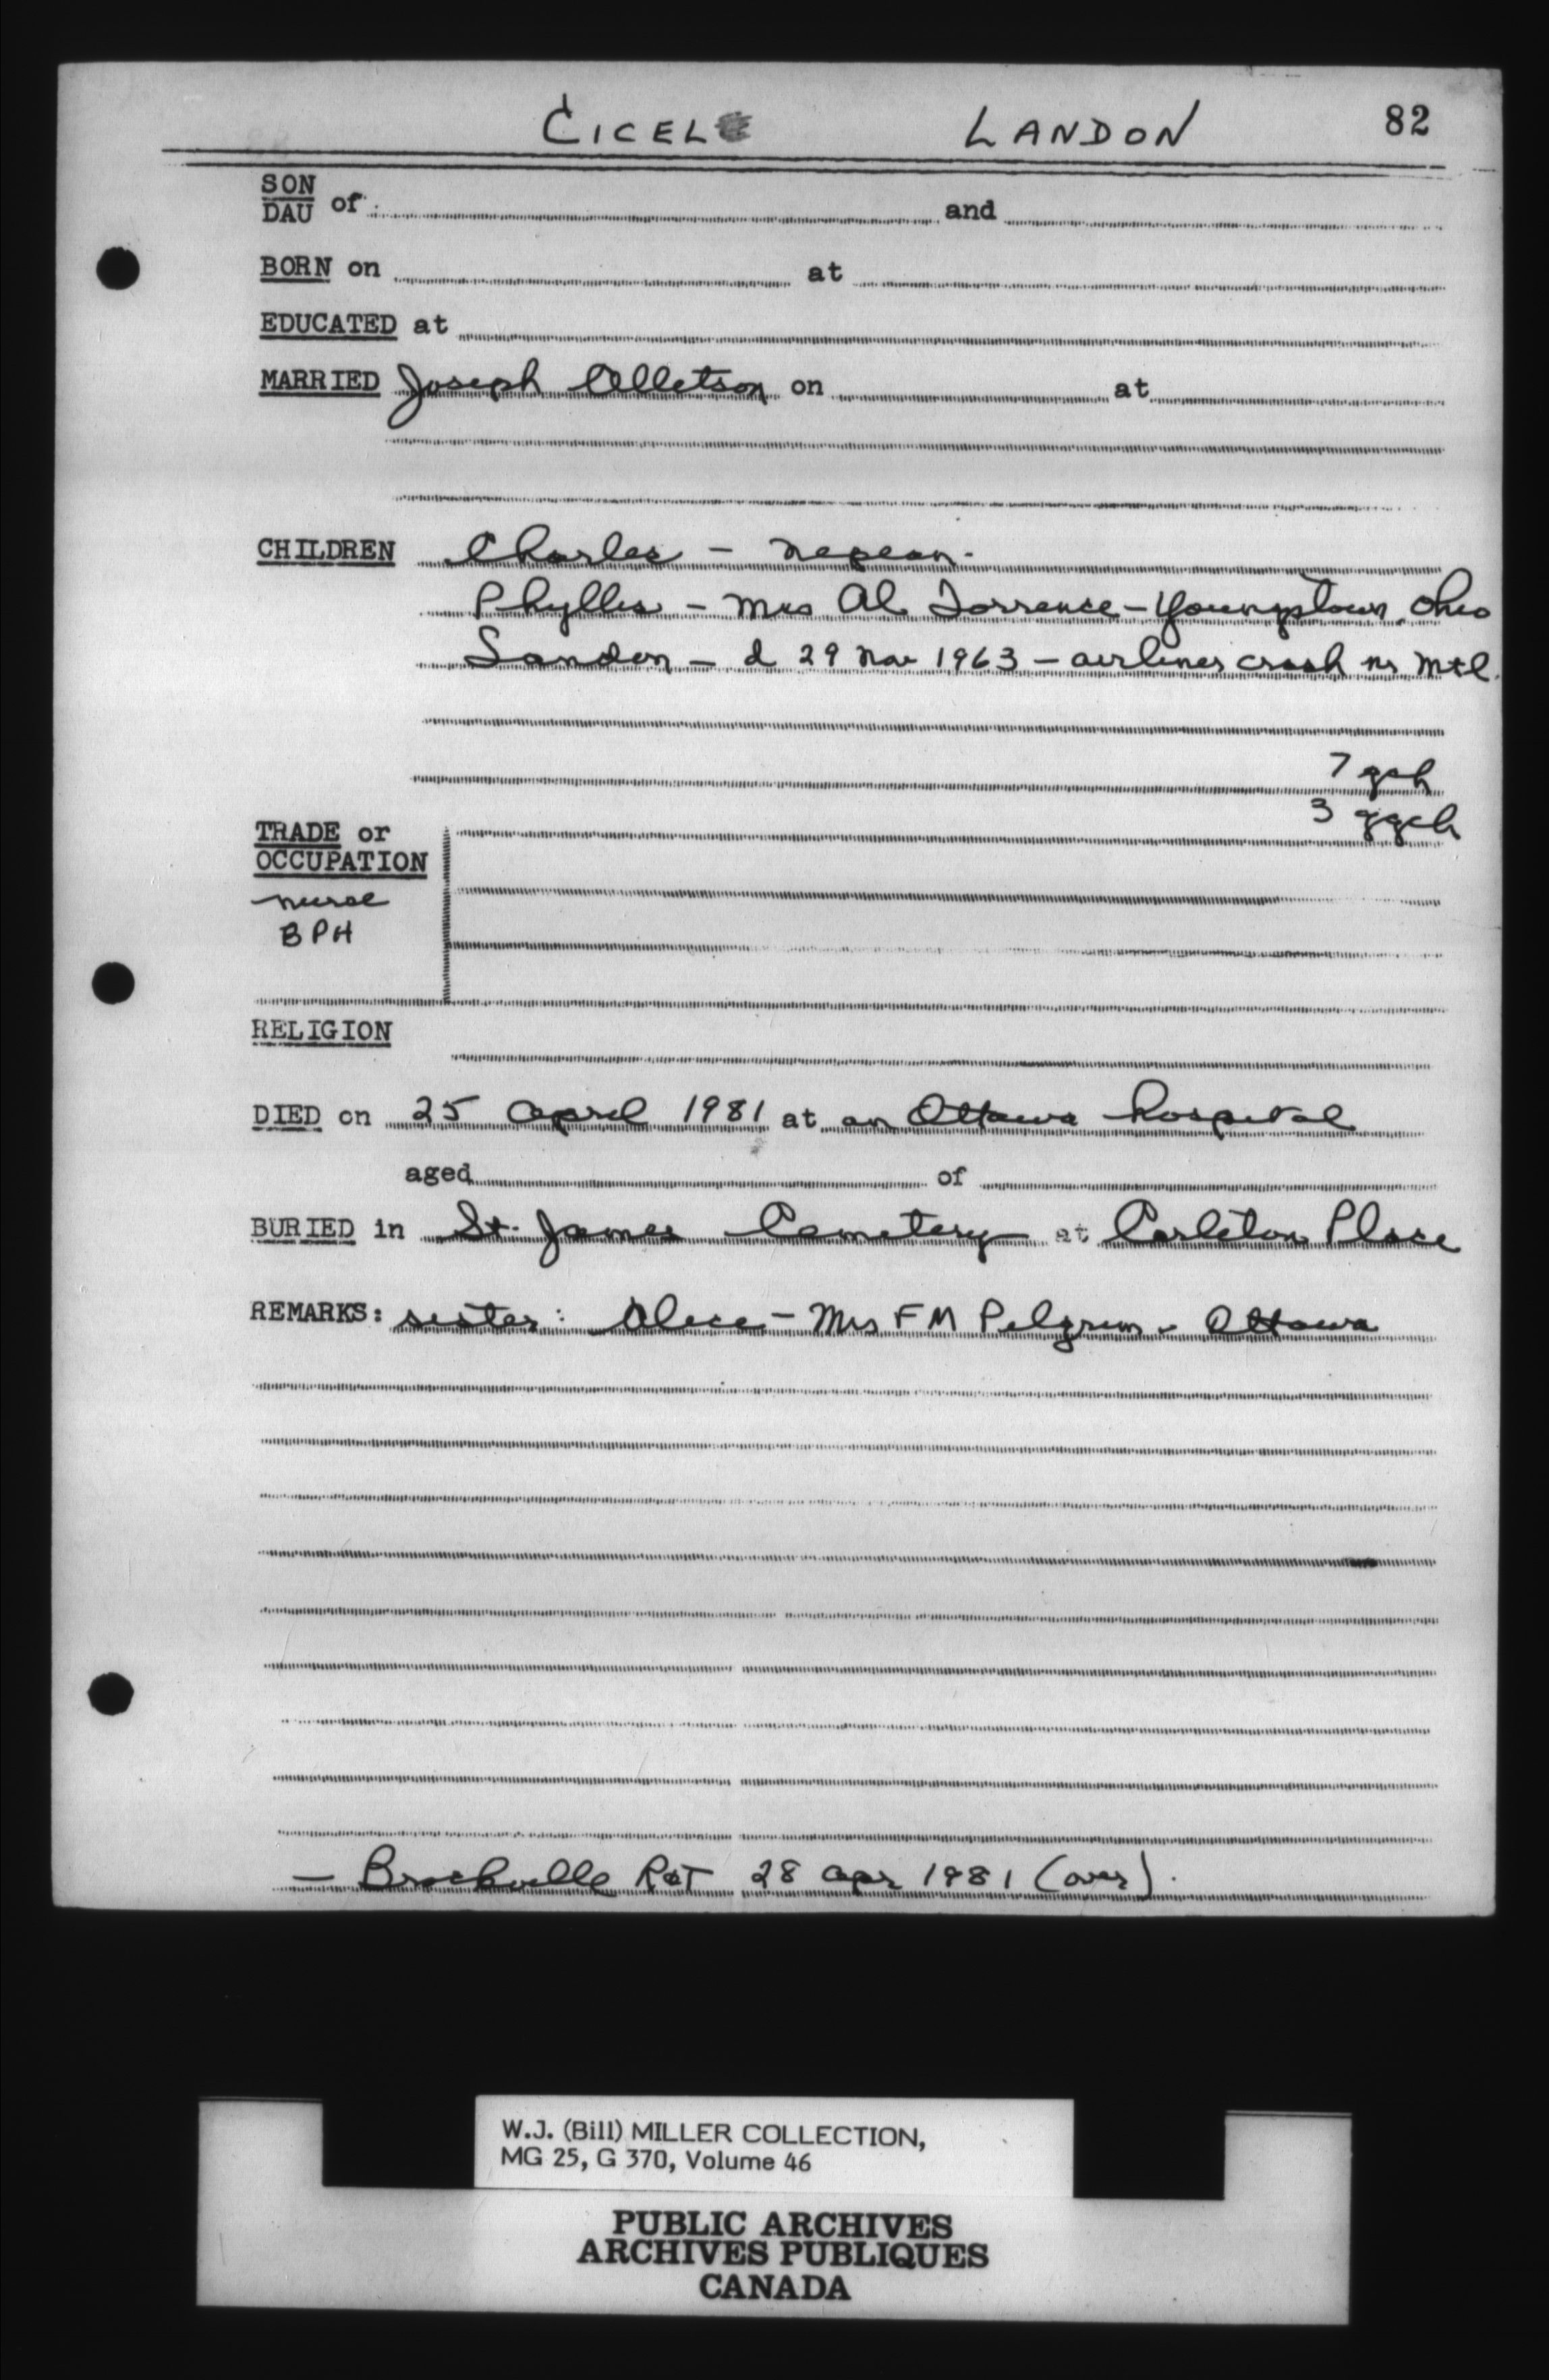 CICEL LANDON 82
SON
DAU of and
BORN on at
EDUCATED at
MARRIED Joseph Olletson on at
CHILDREN Charles – Nepean.
Phyllis – Mrs Al Torrence – Youngstown, Ohio
Landon – d 29 Nov 1963 – airliner crash nr Mtl.
7 gch
3 ggch
TRADE or
OCCUPATION
nurse
BPH
RELIGION
DIED on 25 April 1981 at an Ottawa hospital
aged of
BURIED in St. James Cemetery at Carleton Place
REMARKS: sister: Alice – Mrs F M Pelgrim – Ottawa
– Brockville R&T 28 Apr 1981 (over).
W.J. (Bill) MILLER COLLECTION,
MG 25, G 370, Volume 46
PUBLIC ARCHIVES
ARCHIVES PUBLIQUES
CANADA